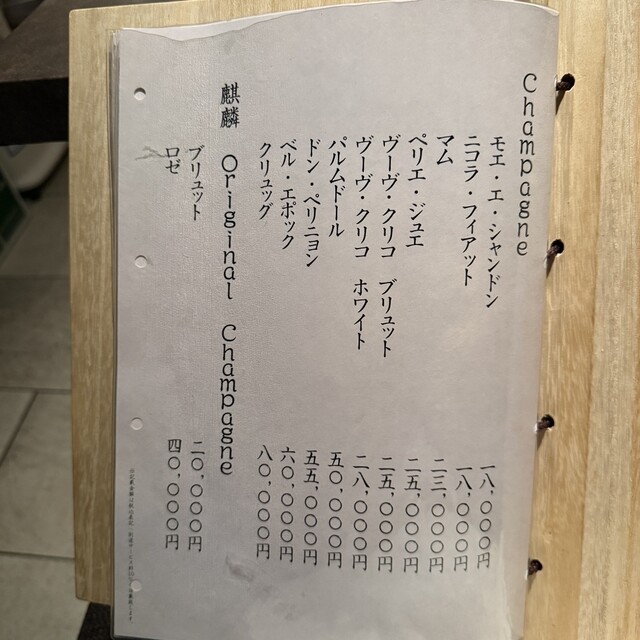 Champagne
モエ・エ・シャンドン 一八,〇〇〇円
ニコラ・フィアット 一八,〇〇〇円
マム 二三,〇〇〇円
ペリエ・ジュエ 二五,〇〇〇円
ヴーヴ・クリコ ブリュット 二五,〇〇〇円
ヴーヴ・クリコ ホワイト 二八,〇〇〇円
パルムドール 五〇,〇〇〇円
ドン・ペリニヨン 五五,〇〇〇円
ベル・エポック 六〇,〇〇〇円
クリュッグ 八〇,〇〇〇円
麒麟 Original Champagne
ブリュット 二〇,〇〇〇円
ロゼ 四〇,〇〇〇円